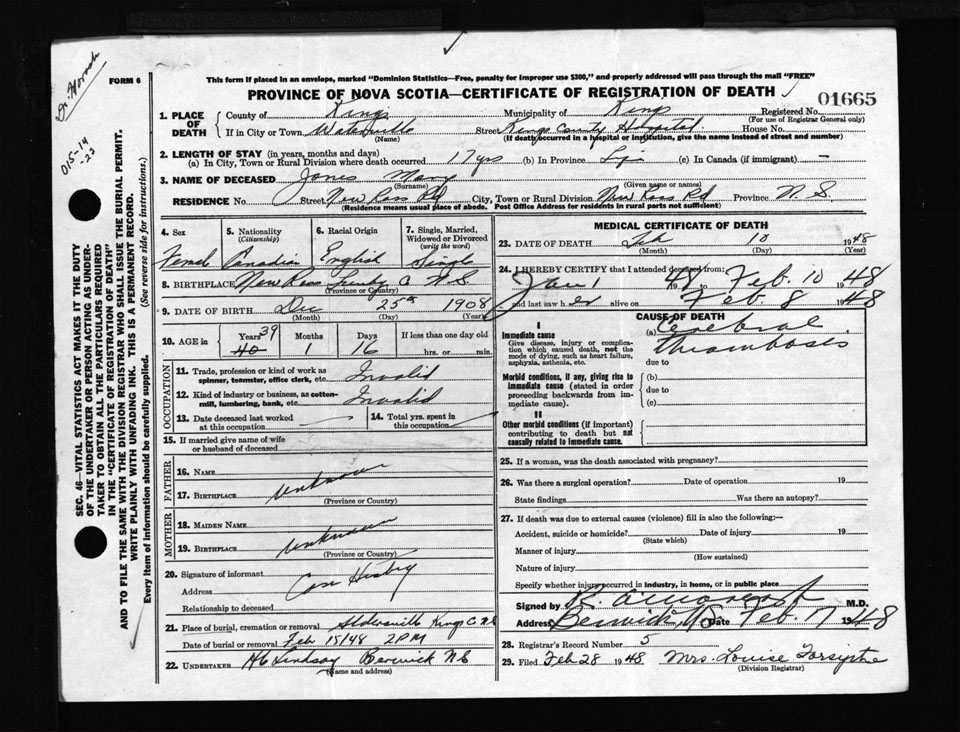 Dr. 
015-14
-23
FORM 6
This form if placed in an envelope, marked "Dominion Statistics—Free, penalty for improper use $300," and properly addressed will pass through the mail "FREE"
PROVINCE OF NOVA SCOTIA—CERTIFICATE OF REGISTRATION OF DEATH
01665
1. PLACE OF DEATH
County of Kings Municipality of Kings Registered No.
(For use of Registrar General only)
If in City or Town Waterville Street Kings County Hospital House No.
(Name) (If death occurred in a hospital or institution, give the name instead of street and number)
2. LENGTH OF STAY (in years, months and days)
(a) In City, Town or Rural Division where death occurred 17 yrs (b) In Province Life (c) In Canada (if immigrant) —
3. NAME OF DECEASED Jones Mary
(Surname) (Given name or names)
RESIDENCE No. Street New Ross Rd City, Town or Rural Division New Ross Rd Province N.S.
(Residence means usual place of abode. Post Office Address for residents in rural parts not sufficient)
4. Sex
Femal
5. Nationality (Citizenship)
Canadian
6. Racial Origin
English
7. Single, Married, Widowed or Divorced (write the word)
Single
8. BIRTHPLACE New Ross Lunby Co N.S.
9. DATE OF BIRTH Dec 25th 1908
(Month) (Day) (Year)
10. AGE in Years Months Days If less than one day old
40 39 1 16 hrs. or min.
OCCUPATION
11. Trade, profession or kind of work as spinner, teamster, office clerk, etc. Invalid
12. Kind of industry or business, as cotton-mill, lumbering, bank, etc. Invalid
13. Date deceased last worked at this occupation
14. Total yrs. spent in this occupation
15. If married give name of wife or husband of deceased
FATHER
16. NAME
17. BIRTHPLACE unknown
(Province or Country)
MOTHER
18. MAIDEN NAME
19. BIRTHPLACE unknown
(Province or Country)
20. Signature of informant
Address Case History
Relationship to deceased
21. Place of burial, cremation or removal Aldersville Kings Co N.S.
Date of burial or removal Feb 15/48 2 PM
22. UNDERTAKER H C Lindsay Berwick N.S.
(Name and address)
MEDICAL CERTIFICATE OF DEATH
23. DATE OF DEATH Feb 10 1948
(Month) (Day)
24. I HEREBY CERTIFY that I attended deceased from:
Jan 1 1948 to Feb. 10 1948
and last saw her alive on Feb. 8 1948
CAUSE OF DEATH
I
Immediate cause
Give disease, injury or complication which caused death, not the mode of dying, such as heart failure, asphyxia, asthenia, etc.
(a) Cerebral
Thrombosis
due to
Morbid conditions, if any, giving rise to immediate cause (stated in order proceeding backwards from immediate cause).
(b)
due to
(c)
II
Other morbid conditions (if important) contributing to death but not causally related to immediate cause.
25. If a woman, was the death associated with pregnancy?
26. Was there a surgical operation? Date of operation 19
State findings Was there an autopsy?
27. If death was due to external causes (violence) fill in also the following:—
Accident, suicide or homicide? Date of injury 19
(State which)
Manner of injury
(How sustained)
Nature of injury
Specify whether injury occurred in industry, in home, or in public place
Signed by M.D.
Address Berwick, N.S. Date Feb. 17 1948
28. Registrar's Record Number 5
29. Filed Feb 28 1948 Mrs. Louise Forsythe
(Division Registrar)
SEC. 46—VITAL STATISTICS ACT MAKES IT THE DUTY
OF THE UNDERTAKER OR PERSON ACTING AS UNDER-
TAKER TO OBTAIN ALL THE PARTICULARS REQUIRED
IN THE "CERTIFICATE OF REGISTRATION OF DEATH"
AND TO FILE THE SAME WITH THE DIVISION REGISTRAR WHO SHALL ISSUE THE BURIAL PERMIT.
WRITE PLAINLY WITH UNFADING INK. THIS IS A PERMANENT RECORD.
Every item of information should be carefully supplied. (See reverse side for instructions.)